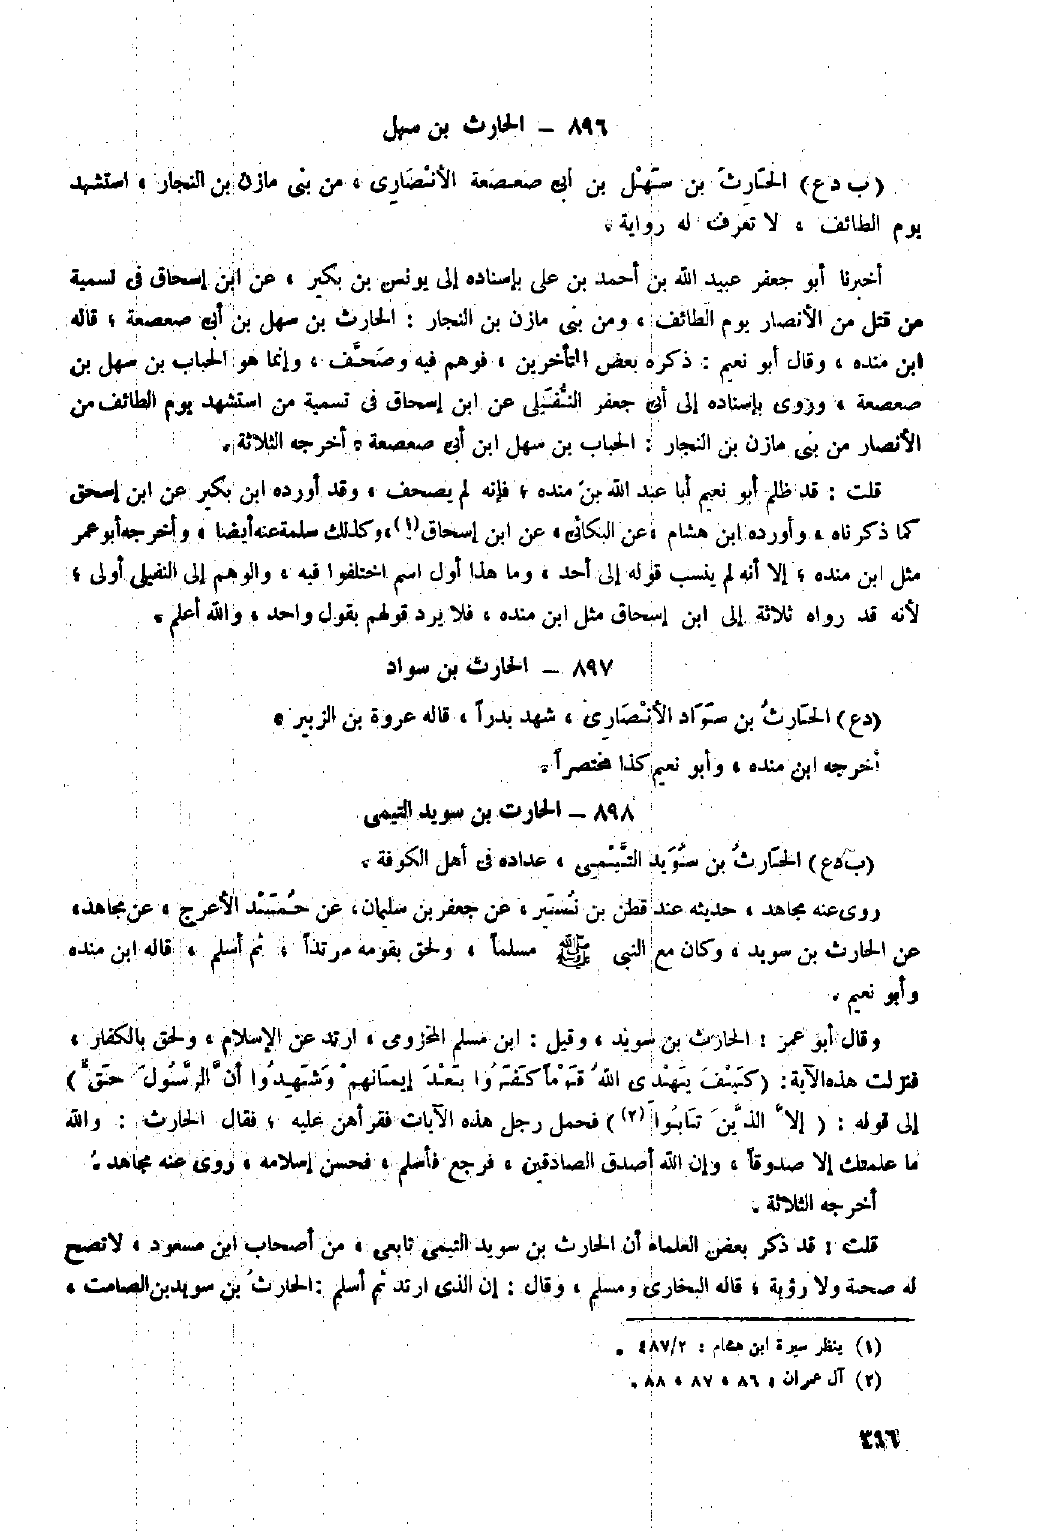 ٨٩٦ – الحارث بن سهل
(ب د ع) الحَارثَ بن سَهْل بن أبى صعصعة الأنْصَارى ، من بنى مازن بن النجار ، استشهد
يوم الطائف ، لا تعرف له رواية .
أخبرنا أبو جعفر عبيد الله بن أحمد بن على بإسناده إلى يونس بن بكير ، عن ابن إسحاق فى تسمية
من قتل من الأنصار يوم الطائف ، ومن بنى مازن بن النجار : الحارث بن سهل بن أبى صعصعة ؛ قاله
ابن منده ، وقال أبو نعيم : ذكره بعض المتأخرين ، فوهم فيه وصَحَّف ، وإنما هو الحباب بن سهل بن
صعصعة ، وروى بإسناده إلى أبى جعفر النُّفَيلى عن ابن إسحاق فى تسمية من استشهد يوم الطائف من
الأنصار من بنى مازن بن النجار : الحباب بن سهل ابن أبى صعصعة . أخرجه الثلاثة .
قلت : قد ظلم أبو نعيم أبا عبد الله بن منده ؛ فإنه لم يصحف ، وقد أورده ابن بكير عن ابن إسحق
كما ذكرناه ، وأورده ابن هشام ، عن البكائى ، عن ابن إسحاق (١) ، وكذلك سلمة عنه أيضا ، وأخرجه أبو عمر
مثل ابن منده ؛ إلا أنه لم ينسب قوله إلى أحد ، وما هذا أول اسم اختلفوا فيه ، والوهم إلى النفيلى أولى ؛
لأنه قد رواه ثلاثة إلى ابن إسحاق مثل ابن منده ، فلا يرد قولهم بقول واحد ، والله أعلم .
٨٩٧ – الحارث بن سواد
(دع) الحَارثُ بن سَوَاد الأنْصَارى ، شهد بدراً ، قاله عروة بن الزبير .
أخرجه ابن منده ، وأبو نعيم كذا مختصراً .
٨٩٨ – الحارث بن سويد التيمى
(ب د ع) الحَارثُ بن سُوَيد التَّيْمى ، عداده فى أهل الكوفة .
روى عنه مجاهد ، حديثه عند قطن بن نُسَير ، عن جعفر بن سليمان ، عن حُمَيْد الأعرج ، عن مجاهد ،
عن الحارث بن سويد ، وكان مع النبى ﷺ مسلماً ، ولحق بقومه مرتداً ، ثم أسلم ، قاله ابن منده
وأبو نعيم .
وقال أبو عمر : الحارث بن سويد ، وقيل : ابن مسلم المخزومى ، ارتد عن الإسلام ، ولحق بالكفار ،
فنزلت هذه الآية : (كَيْفَ يَهْدِى اللهُ قَوْماً كَفَرُوا بَعْدَ إيمَانِهمْ وَشَهِدُوا أنَّ الرَّسُولَ حَقٌّ)
إلى قوله : ( إلاَّ الذَّينَ تَابُوا (٢) ) فحمل رجل هذه الآيات فقرأهن عليه ؛ فقال الحارث : والله
ما علمتك إلا صدوقاً ، وإن الله أصدق الصادقين ، فرجع فأسلم ، فحسن إسلامه ، روى عنه مجاهد .
أخرجه الثلاثة .
قلت : قد ذكر بعض العلماء أن الحارث بن سويد التيمى تابعى ، من أصحاب ابن مسعود ، لا تصح
له صحبة ولا رؤية ؛ قاله البخارى ومسلم ، وقال : إن الذى ارتد ثم أسلم : الحارثُ بن سويد بن الصامت ،
(١) ينظر سيرة ابن هشام : ٤٨٧/٢ .
(٢) آل عمران ، ٨٦ ، ٨٧ ، ٨٨ .
٣٩٦